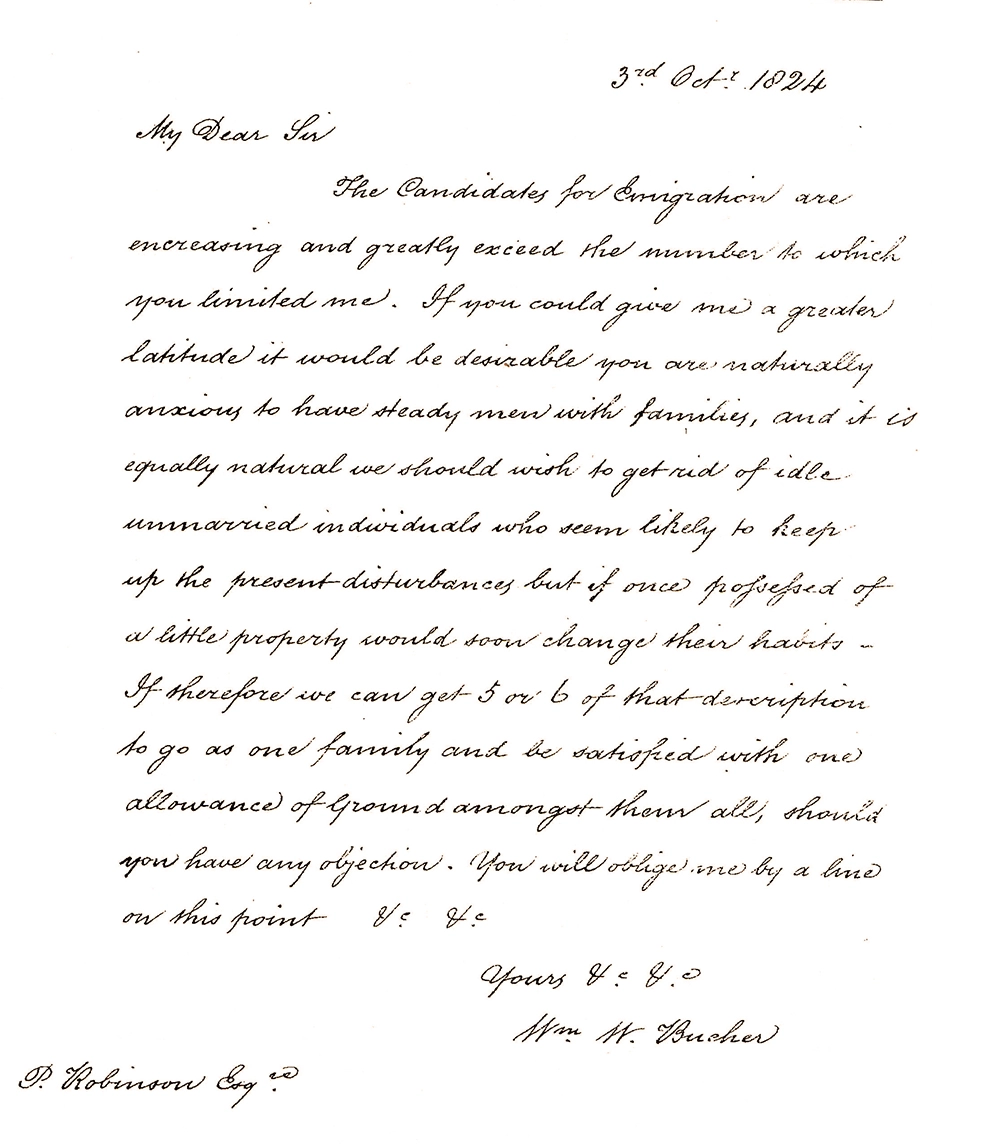 3rd Octr. 1824
My Dear Sir
The Candidates for Emigration are
encreasing and greatly exceed the number to which
you limited me. If you could give me a greater
latitude it would be desirable you are naturally
anxious to have steady men with families, and it is
equally natural we should wish to get rid of idle
unmarried individuals who seem likely to keep
up the present disturbances but if once possessed of
a little property would soon change their habits -
If therefore we can get 5 or 6 of that description
to go as one family and be satisfied with one
allowance of Ground amongst them all, should
you have any objection. You will oblige me by a line
on this point &c &c
Yours &c &c
Wm W. Bucher
P. Robinson Esqre